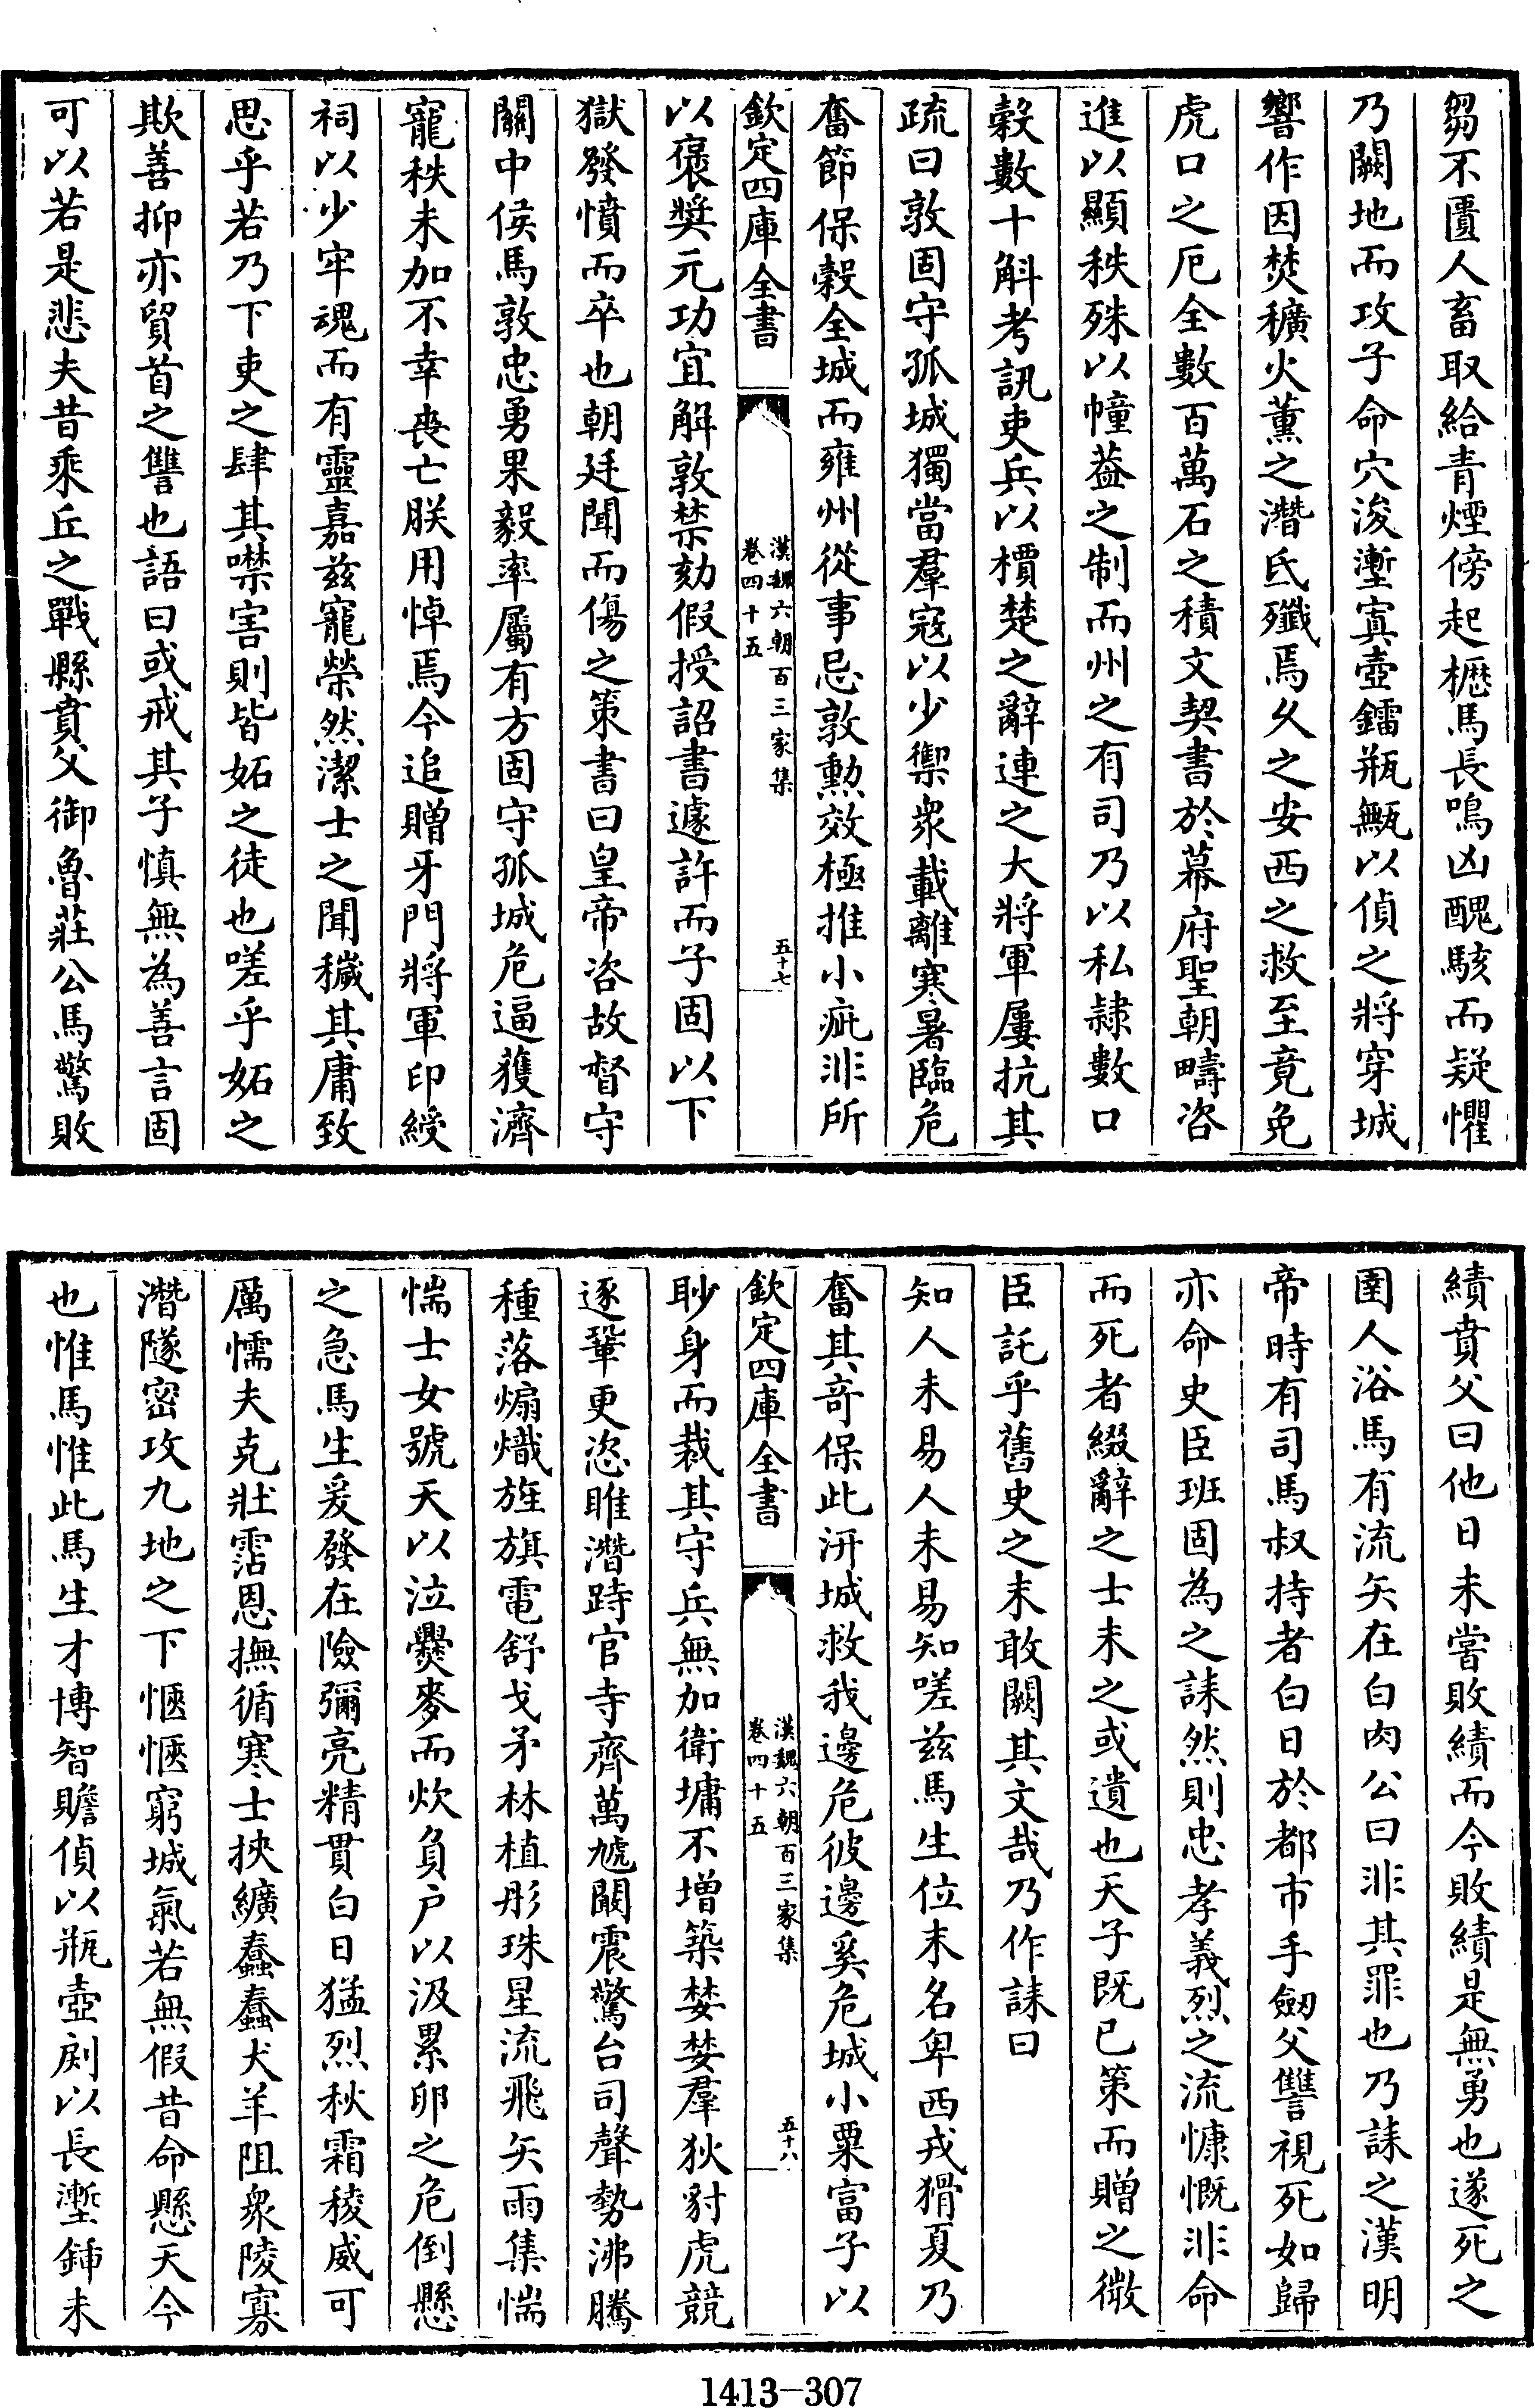 芻不匱人畜取給青煙傍起櫪馬長鳴凶醜駭而疑懼
乃闕地而攻子命穴浚壍寘壺鐳瓶甒以偵之將穿城
響作因焚穬火薰之潛氐殲焉乆之安西之救至竟免
虎口之厄全數百萬石之積文契書於幕府聖朝疇咨
進以顯秩殊以幢葢之制而州之有司乃以私隷數口
穀數十斛考訊吏兵以檟楚之辭連之大將軍屢抗其
疏曰敦固守孤城獨當羣寇以少禦衆載離寒暑臨危
奮節保穀全城而雍州從事忌敦勲效極推小疵非所
欽定四庫全書
漢魏六朝百三家集
卷四十五
五十七
以襃奬元功宜解敦禁劾假授詔書遽許而子固以下
獄發憤而卒也朝廷聞而傷之策書曰皇帝咨故督守
關中侯馬敦忠勇果毅率屬有方固守孤城危逼獲濟
寵秩未加不幸喪亡朕用悼焉今追贈牙門將軍印綬
祠以少牢魂而有靈嘉兹寵榮然潔士之聞穢其庸致
思乎若乃下吏之肆其噤害則皆妬之徒也嗟乎妬之
欺善抑亦貿首之讐也語曰或戒其子慎無為善言固
可以若是悲夫昔乘丘之戰縣賁父御魯莊公馬驚敗
績賁父曰他日未嘗敗績而今敗績是無勇也遂死之
圉人浴馬有流矢在白肉公曰非其罪也乃誄之漢明
帝時有司馬叔持者白日於都市手劒父讐視死如歸
亦命史臣班固為之誄然則忠孝義烈之流慷慨非命
而死者綴辭之士未之或遺也天子既已策而贈之微
臣託乎舊史之末敢闕其文哉乃作誄曰
知人未易人未易知嗟兹馬生位末名卑西戎猾夏乃
奮其奇保此汧城救我邊危彼邊奚危城小粟富子以
欽定四庫全書
漢魏六朝百三家集
卷四十五
五十八
眇身而裁其守兵無加衛墉不增築婪婪羣狄豺虎競
逐鞏更恣睢潛跱官寺齊萬虓闞震驚台司聲勢沸騰
種落煽熾旌旗電舒戈矛林植彤珠星流飛矢雨集惴
惴士女號天以泣爨麥而炊負户以汲累卵之危倒懸
之急馬生爰發在險彌亮精貫白日猛烈秋霜稜威可
厲懦夫克壯霑恩撫循寒士挾纊蠢蠢犬羊阻衆陵寡
潛隧密攻九地之下愜愜窮城氣若無假昔命懸天今
也惟馬惟此馬生才博智贍偵以瓶壺㓟以長壍鍤未
1413-307